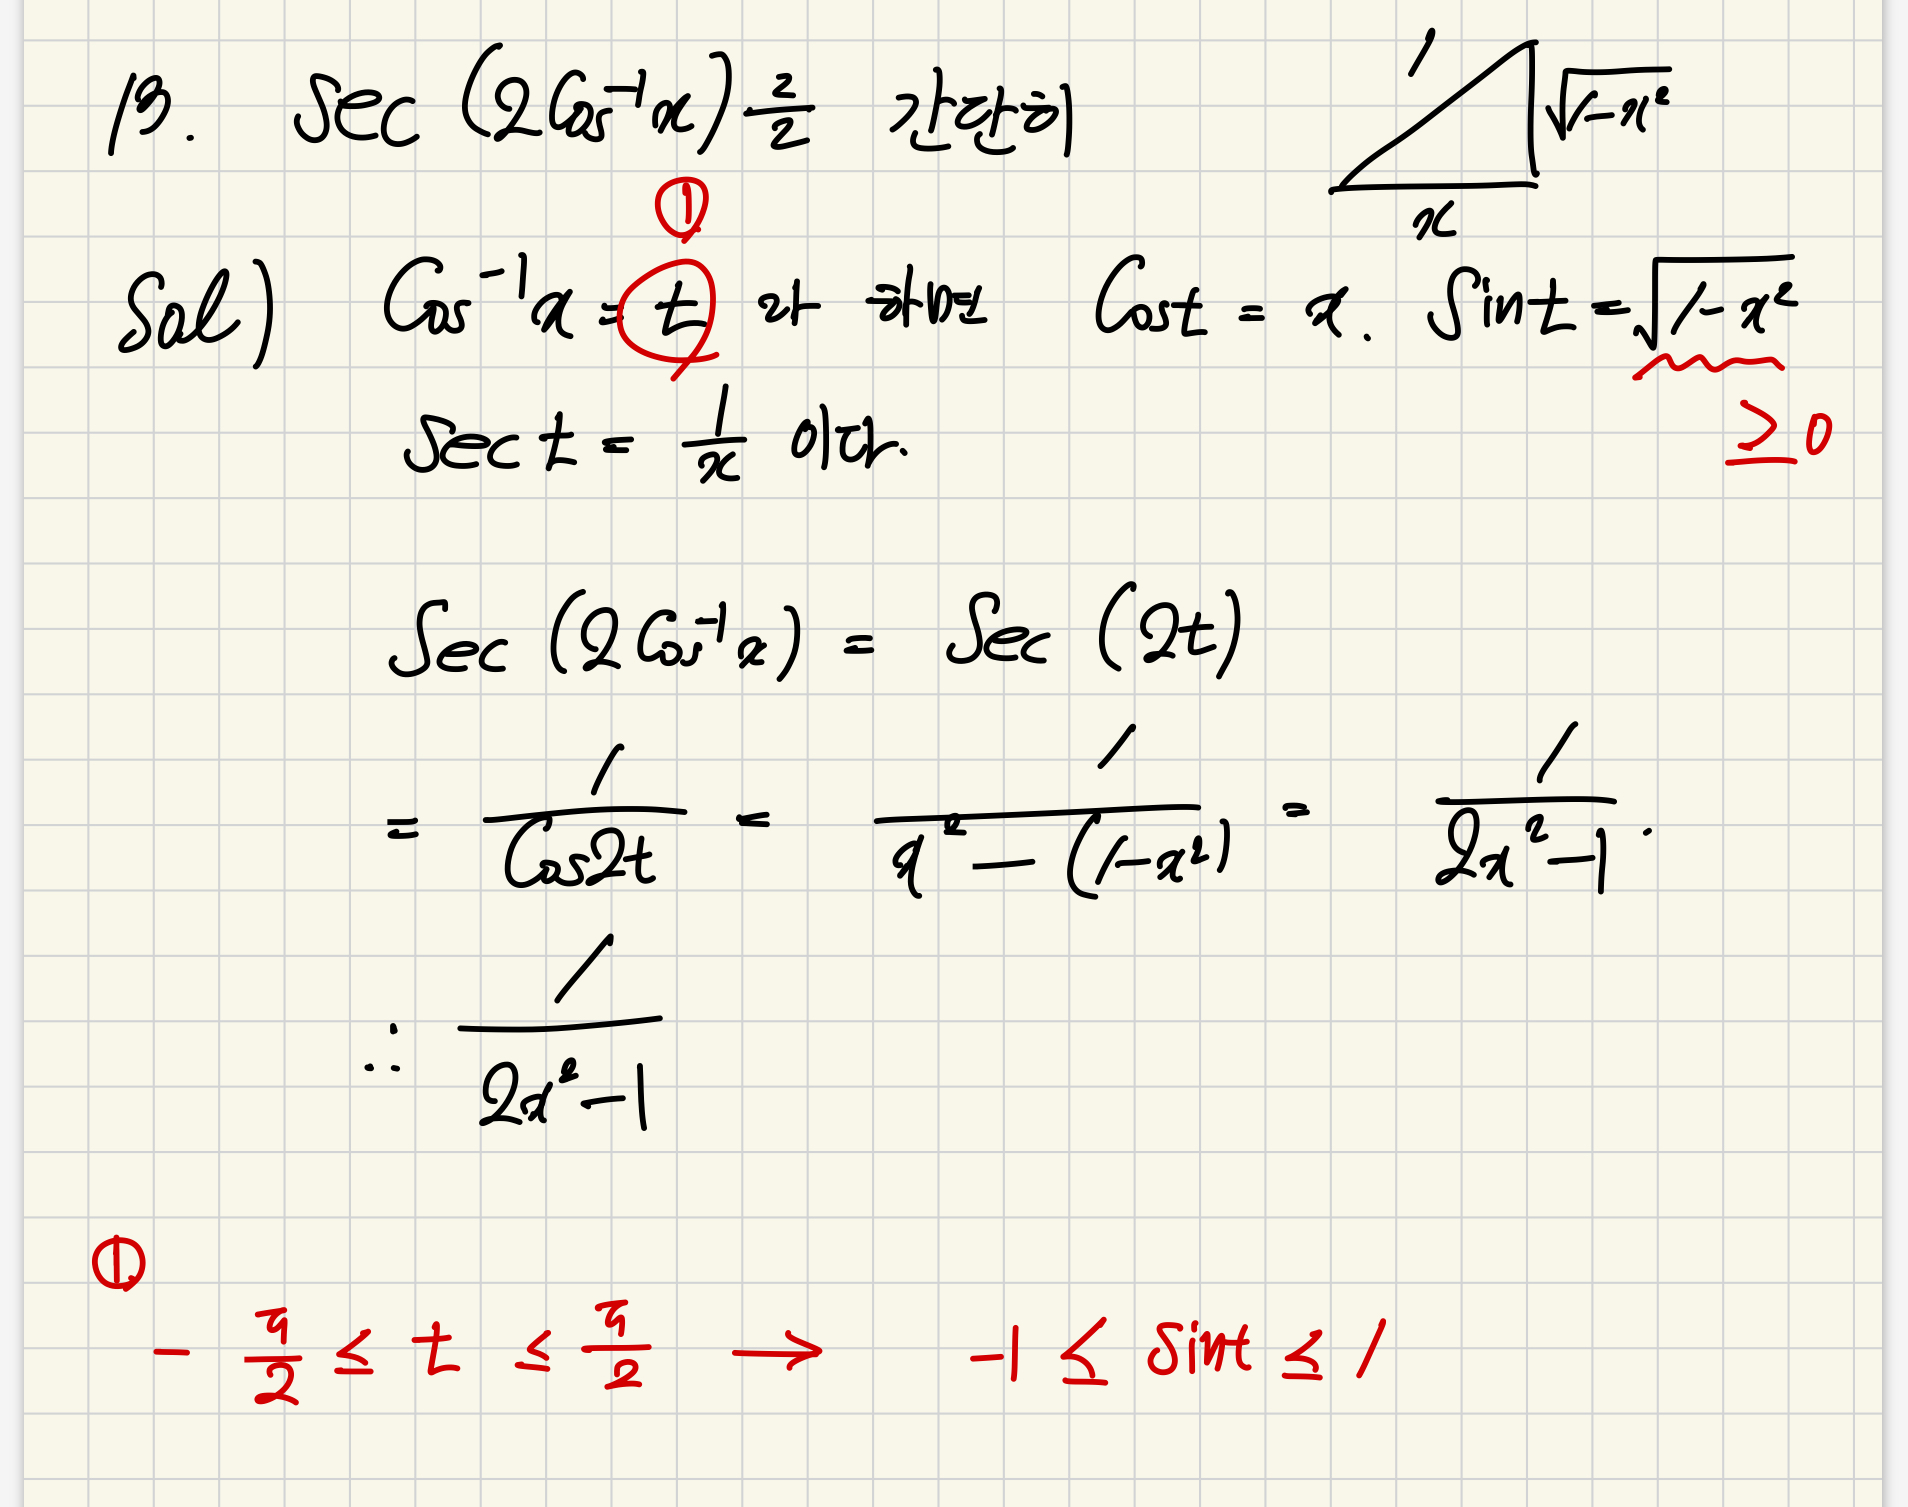 13. Sec (2Cos⁻¹x)를 간단히
1
√1-x²
x
①
Sol) Cos⁻¹x = t 라 하면 Cost = x. Sint = √1-x²
≥ 0
Sec t = 1/x 이다.
Sec (2Cos⁻¹x) = Sec (2t)
= 1/Cos2t = 1/x² - (1-x²) = 1/2x²-1.
∴ 1/2x²-1
①
- π/2 ≤ t ≤ π/2 → -1 ≤ Sint ≤ 1